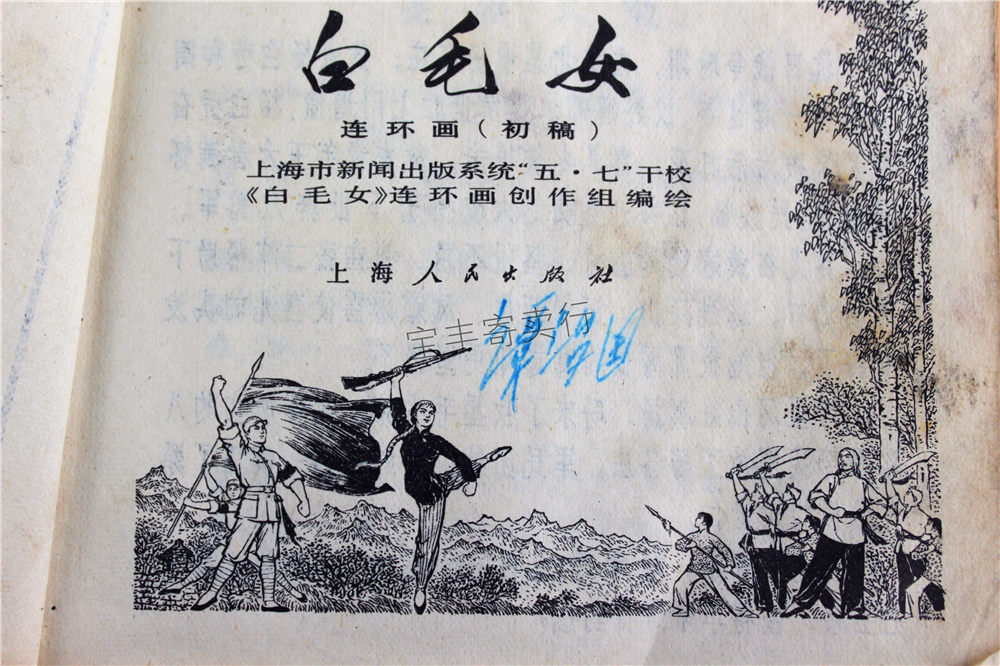 白毛女
连环画（初稿）
上海市新闻出版系统“五·七”干校
《白毛女》连环画创作组编绘
上海人民出版社
宝丰寄卖行